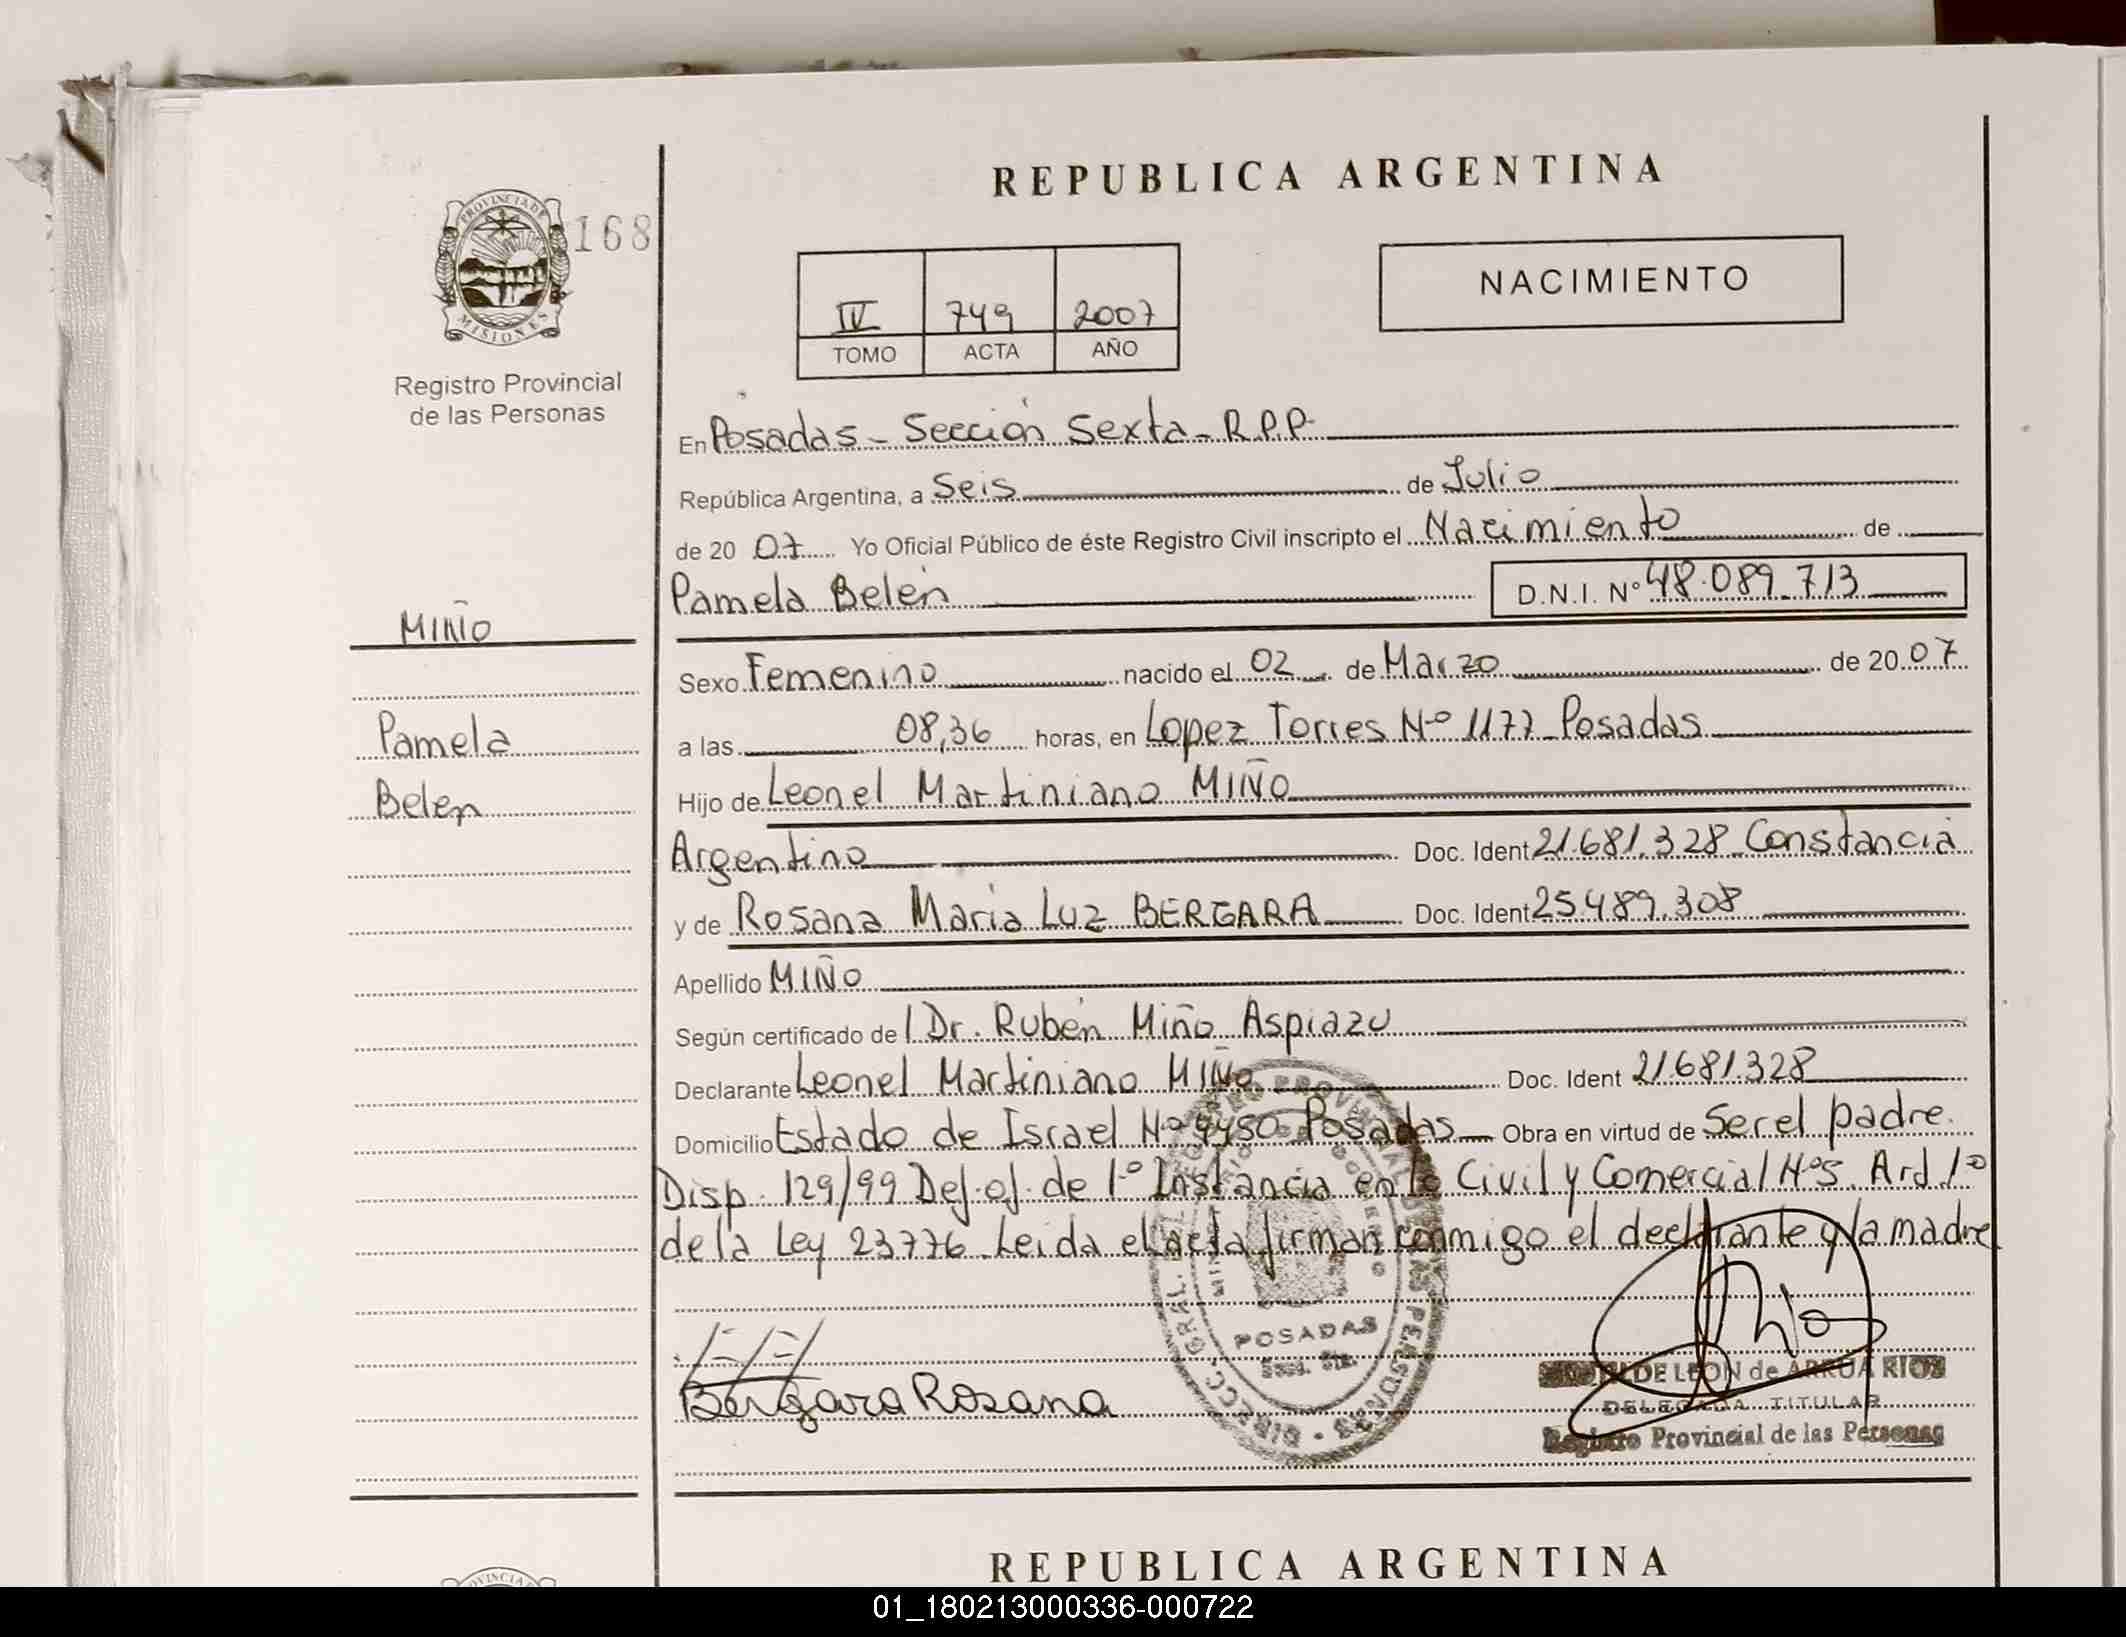 REPUBLICA ARGENTINA
PROVINCIA DE
MISIONES
168
Registro Provincial
de las Personas
IV 749 2007
TOMO ACTA AÑO
NACIMIENTO
En Posadas - Sección Sexta - R.P.P.
República Argentina, a Seis de Julio
de 20 07 Yo Oficial Público de éste Registro Civil inscripto el Nacimiento de
Pamela Belén D.N.I. Nº 48.089.713
MIÑO
Pamela
Belen
Sexo Femenino nacido el 02 de Marzo de 20 07
a las 08,36 horas, en Lopez Torres Nº 1177 Posadas
Hijo de Leonel Martiniano MIÑO
Argentino Doc. Ident 21.681.328 Constancia
y de Rosana Maria Luz BERGARA Doc. Ident 25.489.308
Apellido MIÑO
Según certificado de / Dr. Rubén Miño Aspiazu
Declarante Leonel Martiniano MIÑO Doc. Ident 21681328
Domicilio Estado de Israel Nº Posadas Obra en virtud de Ser el padre.
Disp. 129/99 Def. of. de 1º Instancia en lo Civil y Comercial Nº5. Ard 1º
de la Ley 23776. Leida el acta firman conmigo el declarante y la madre
Bergara Rosana
POSADAS
DE LEON de ARRUA RIOS
DELEGADA TITULAR
Registro Provincial de las Personas
REPUBLICA ARGENTINA
01_180213000336-000722